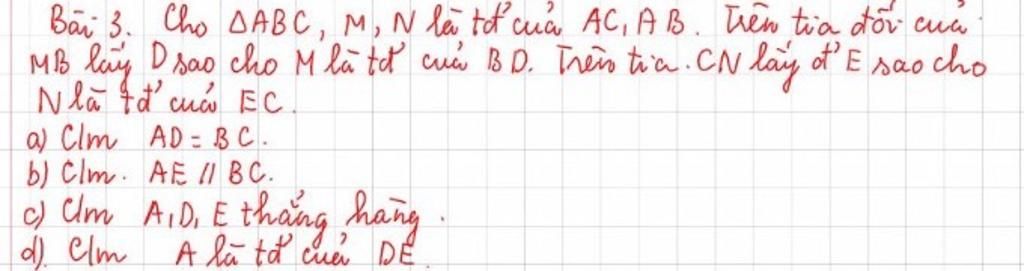 Bài 3. Cho ΔABC, M, N là tđ' của AC, AB. Trên tia đối của
MB lấy D sao cho M là tđ' của BD. Trên tia. CN lấy đ' E sao cho
N là tđ' của EC.
a) C/m AD = BC.
b) C/m. AE // BC.
c) C/m A, D, E thẳng hàng.
d). C/m A là tđ' của DE.